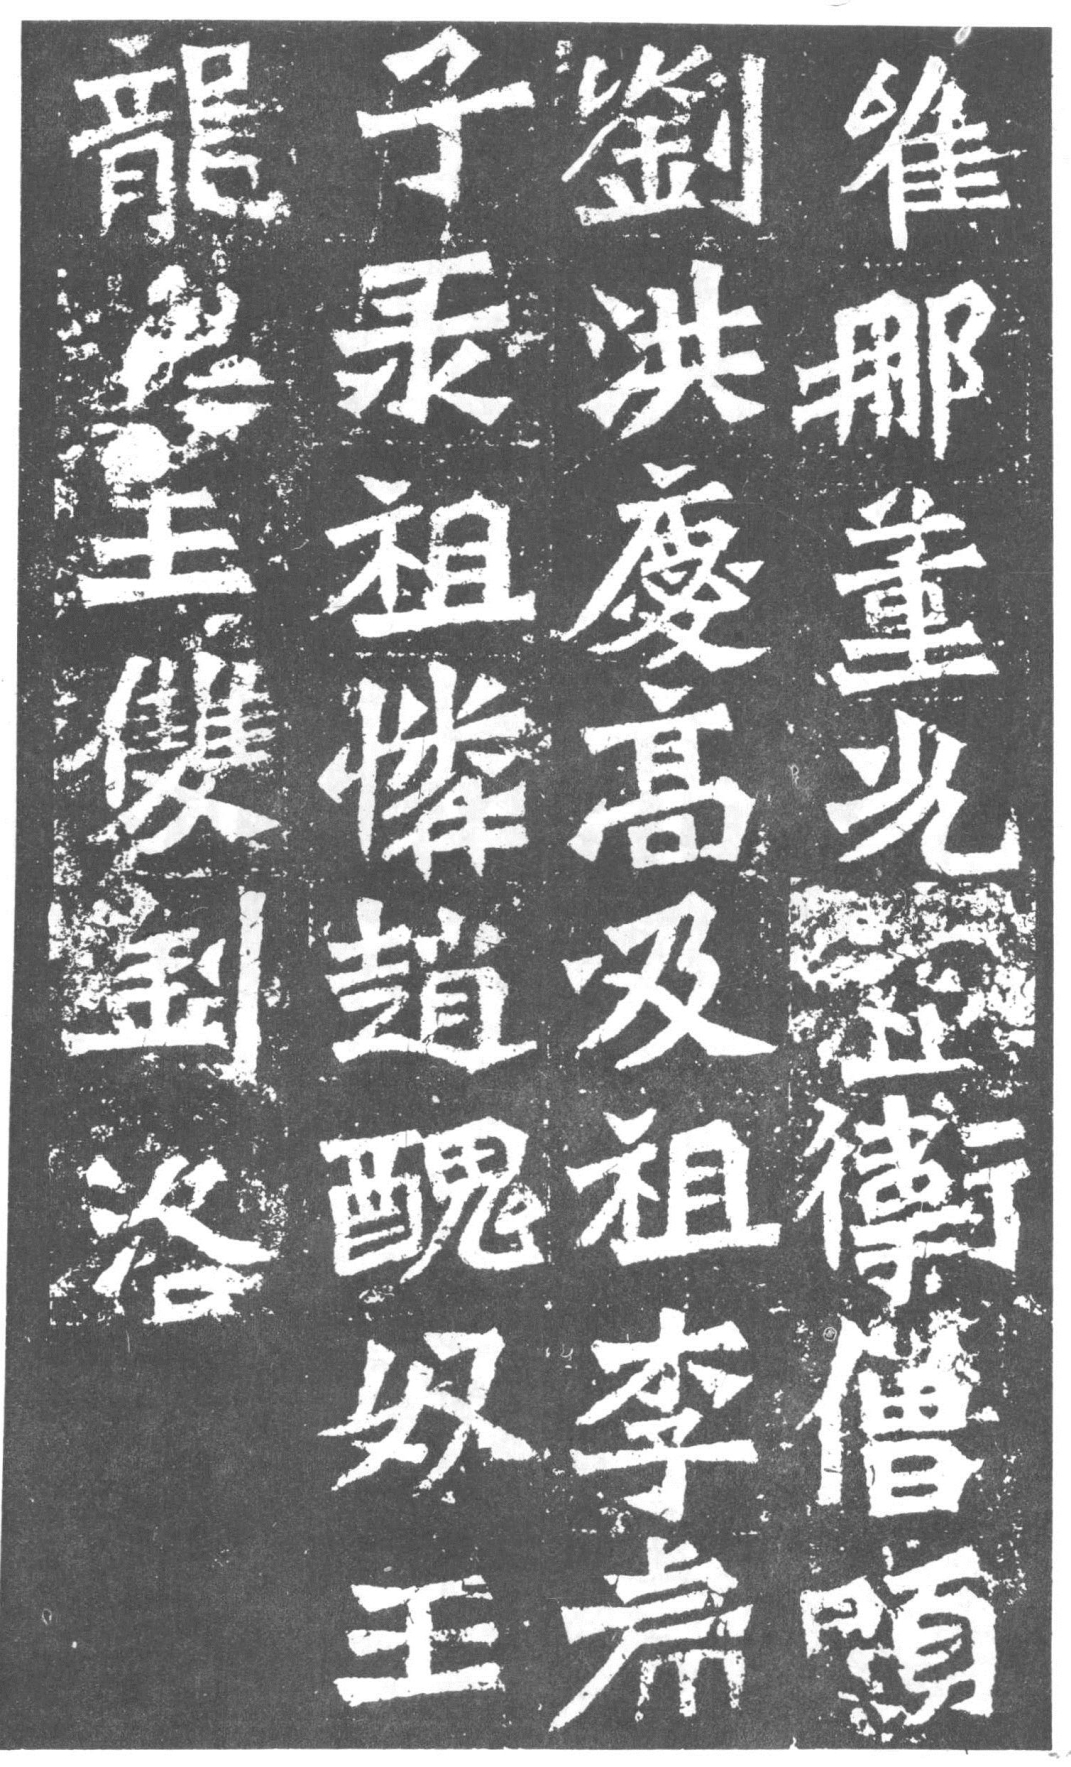 唯那董光衛僧
劉洪慶高及祖李虎
子祖憐趙醜奴王
龍王雙劉洛